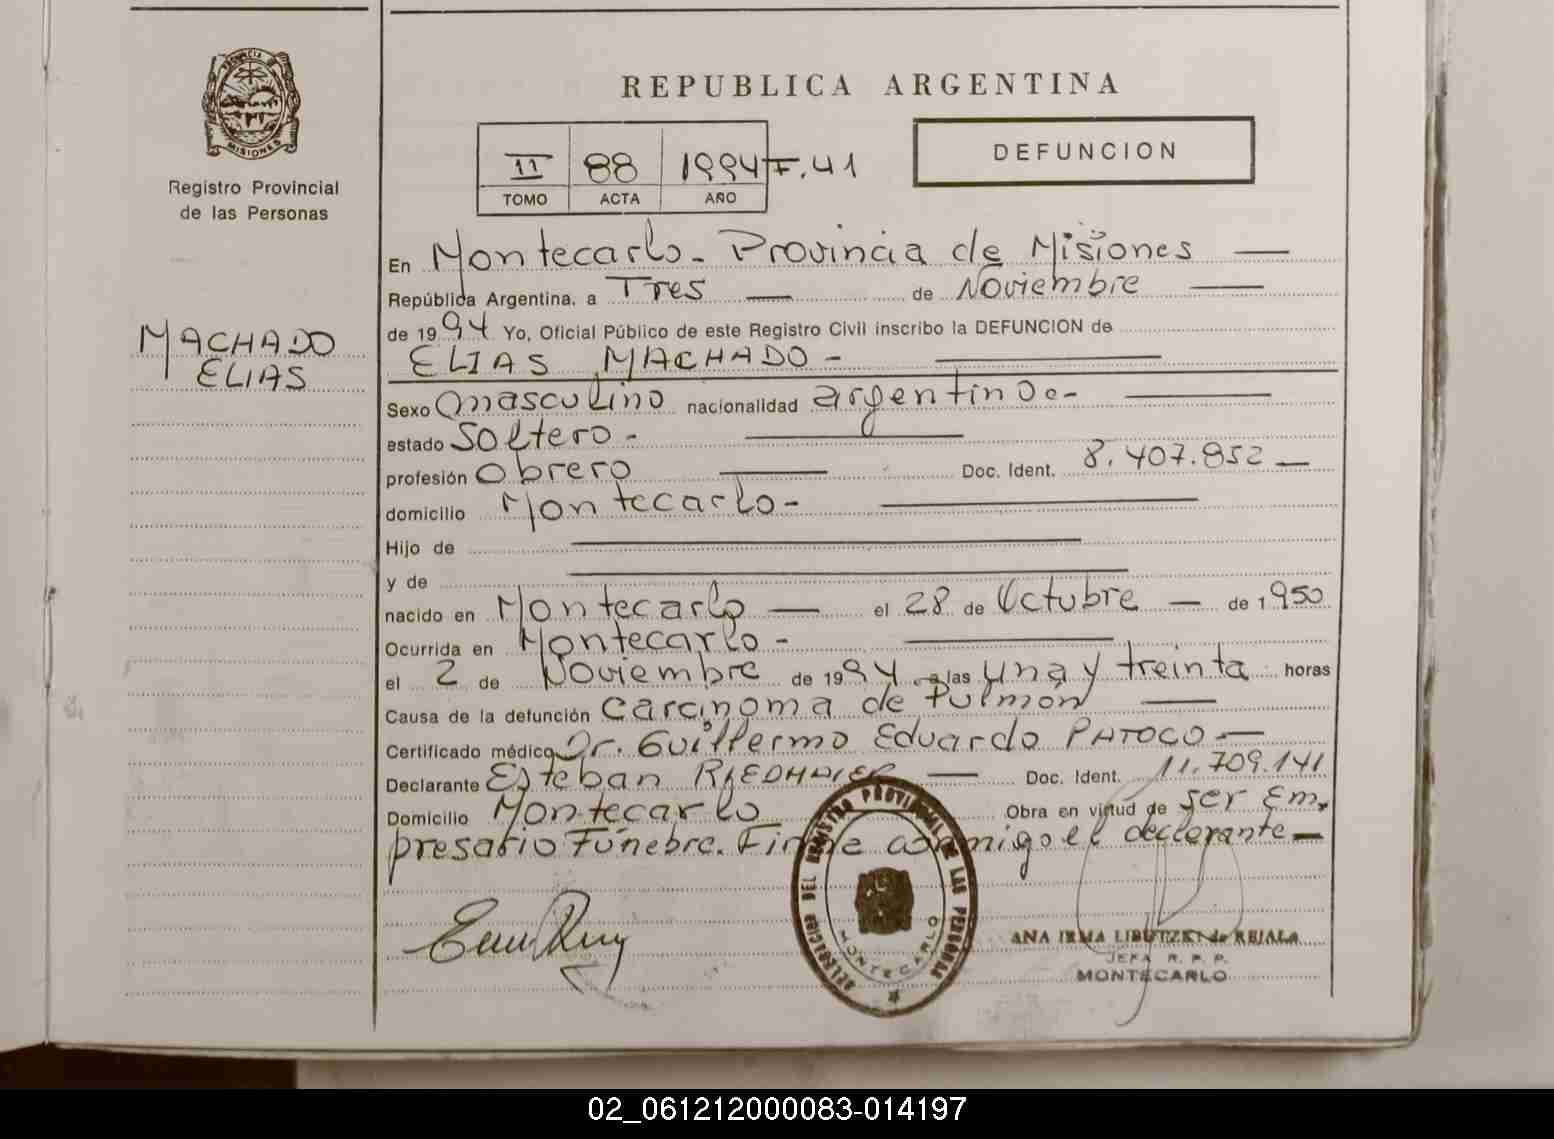 REPUBLICA ARGENTINA
PROVINCIA DE MISIONES
Registro Provincial
de las Personas
II 88 1994 F. 41
TOMO ACTA AÑO
DEFUNCION
MACHADO
ELIAS
En Montecarlo - Provincia de Misiones
República Argentina, a Tres de Noviembre
de 1994 Yo, Oficial Público de este Registro Civil inscribo la DEFUNCION de
ELIAS MACHADO -
Sexo masculino nacionalidad argentino -
estado soltero -
profesión obrero Doc. Ident. 8.407.852
domicilio Montecarlo -
Hijo de
y de
nacido en Montecarlo el 28 de Octubre de 1950
Ocurrida en Montecarlo -
el 2 de Noviembre de 1994 a las una y treinta horas
Causa de la defunción Carcinoma de Pulmón
Certificado médico Dr. Guillermo Eduardo PATOCO
Declarante Esteban Doc. Ident. 11.709.141
Domicilio Montecarlo Obra en virtud de ser Em
presario Fúnebre. Firma conmigo el declarante
DELEGACION DEL REGISTRO PROVINCIAL DE LAS PERSONAS
MONTECARLO
ANA IRMA de REJALA
JEFA R. P. P.
MONTECARLO
02_061212000083-014197